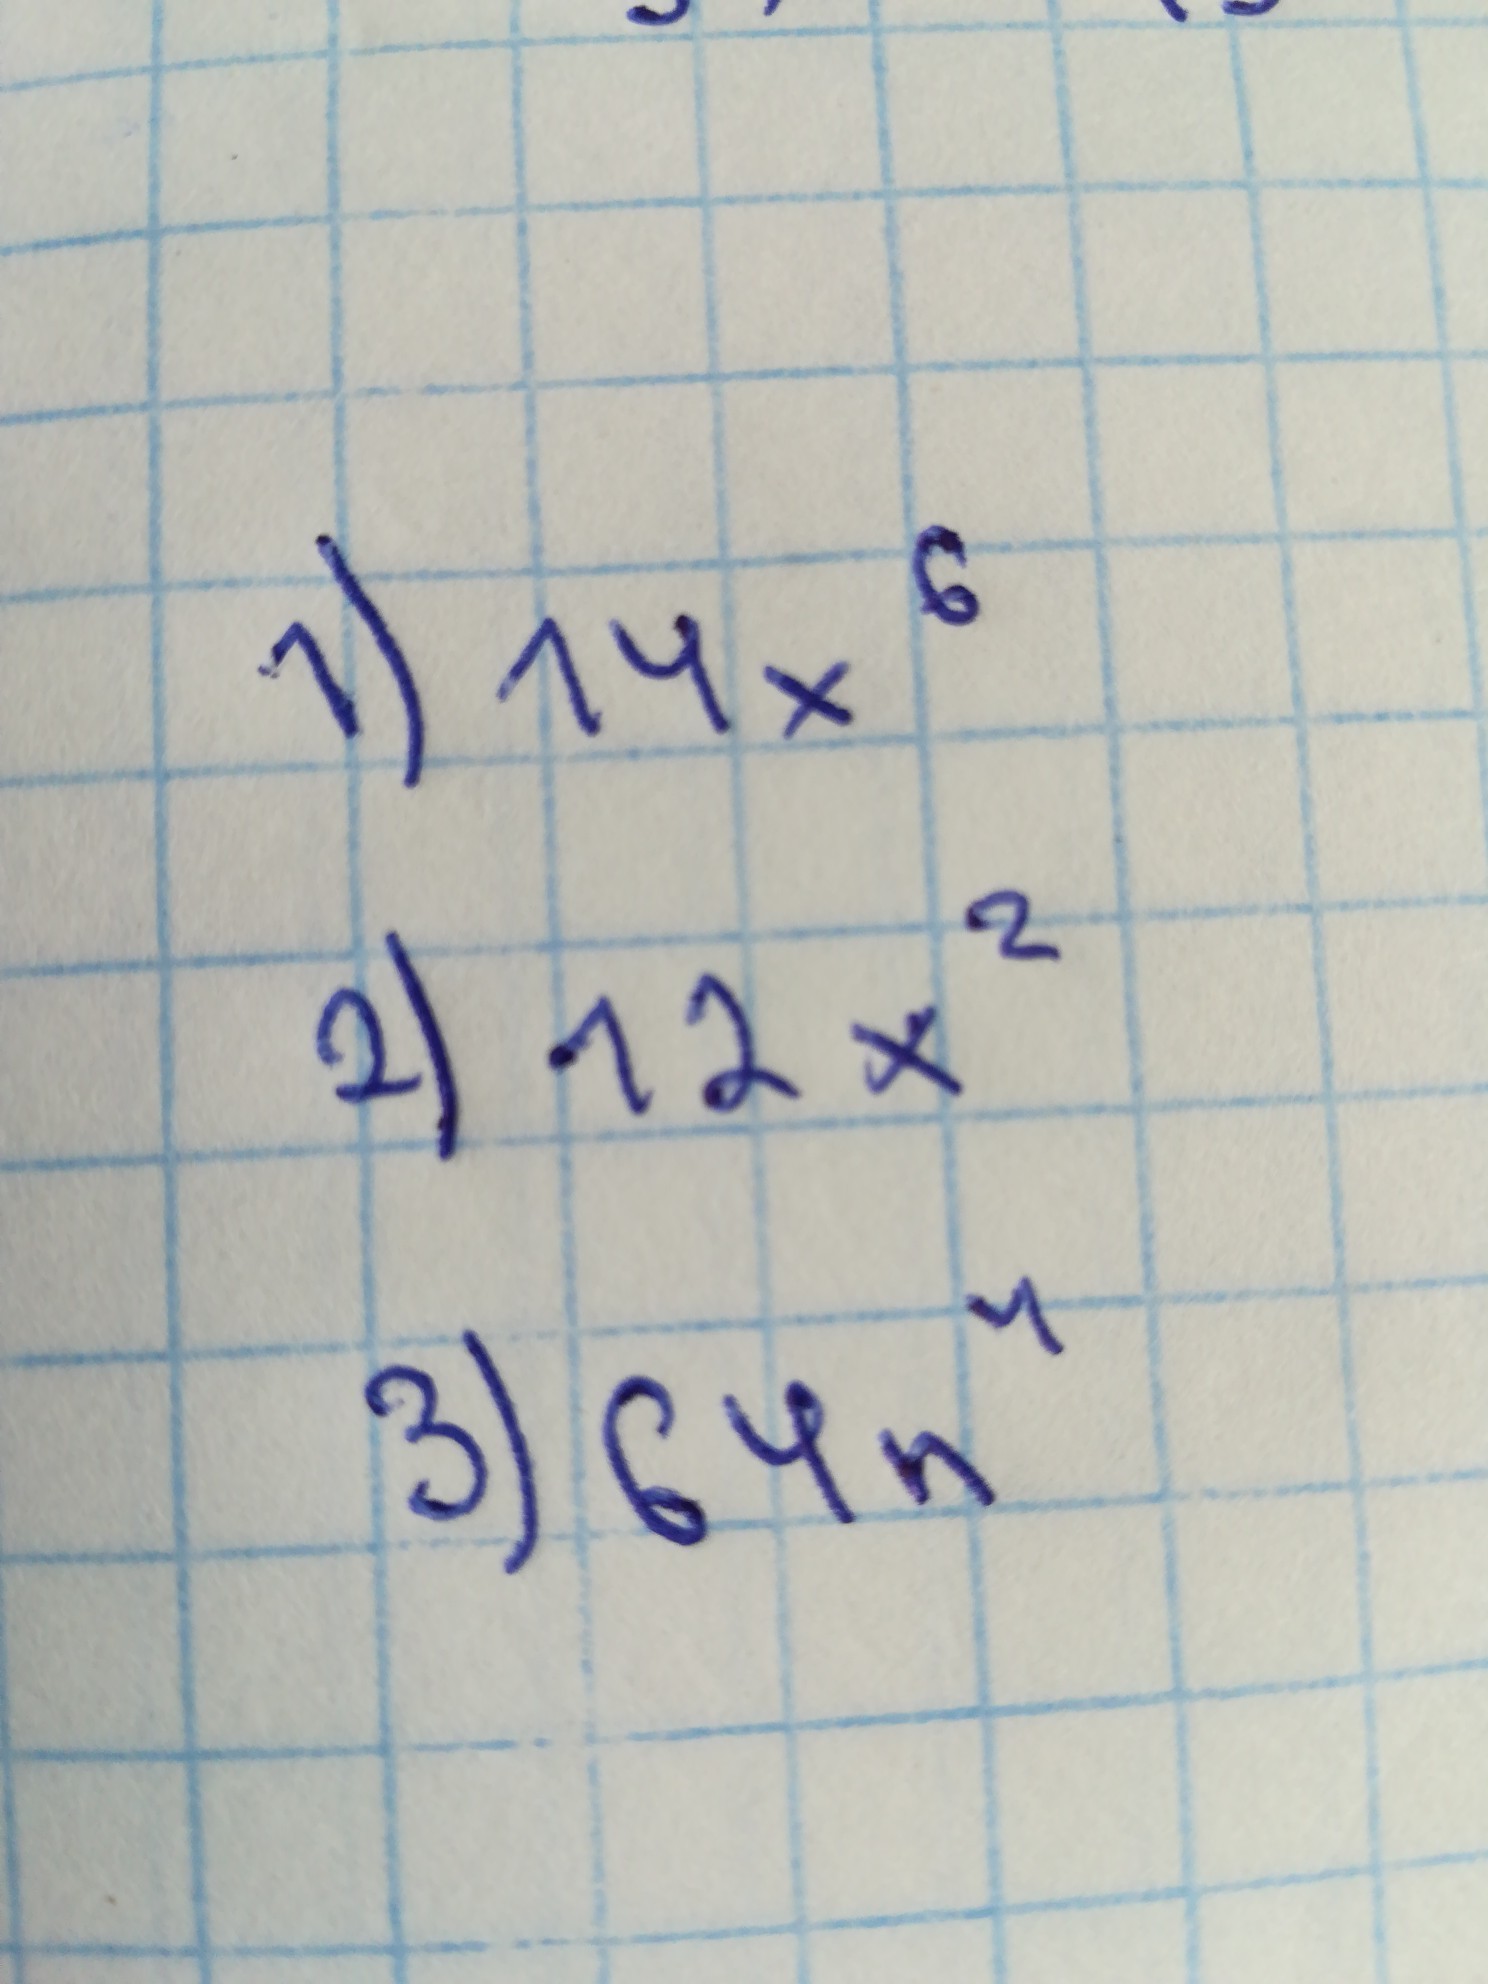 1) 14x⁶
2) 12x²
3) 64n⁴